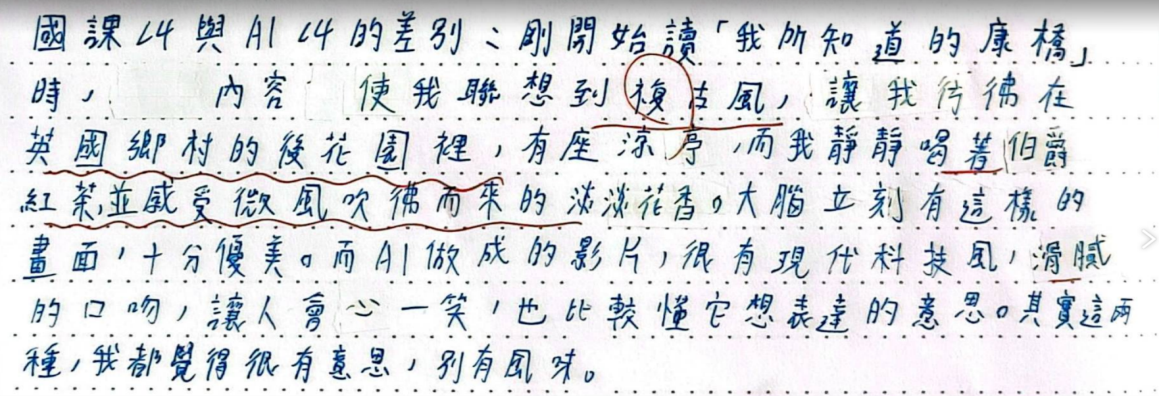 國課L4與AI L4的差別：剛開始讀「我所知道的康橋」
時，內容使我聯想到復古風，讓我彷彿在
英國鄉村的後花園裡，有座涼亭，而我靜靜喝著伯爵
紅茶，並感受微風吹彿而來的淡淡花香。大腦立刻有這樣的
畫面，十分優美。而AI做成的影片，很有現代科技風，滑膩
的口吻，讓人會心一笑，也比較懂它想表達的意思。其實這兩
種，我都覺得很有意思，別有風味。